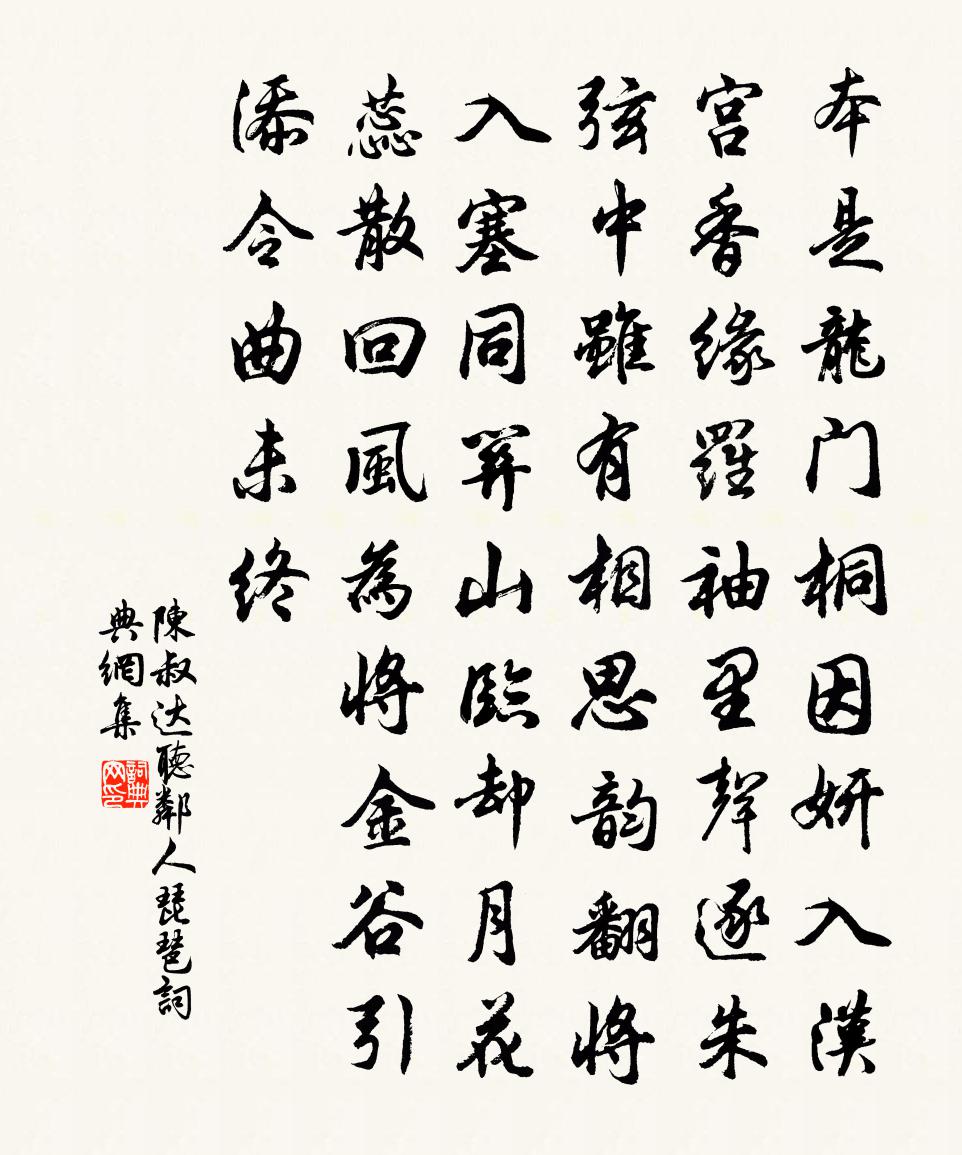 本是龍门桐因妍入漢
宫香緣羅袖里聲逐朱
弦中雖有相思韵翻將
入塞同關山臨却月花
蕊散回風為將金谷引
添令曲未終
陳叔达聽鄰人琵琶詞
典網集
詞典网印